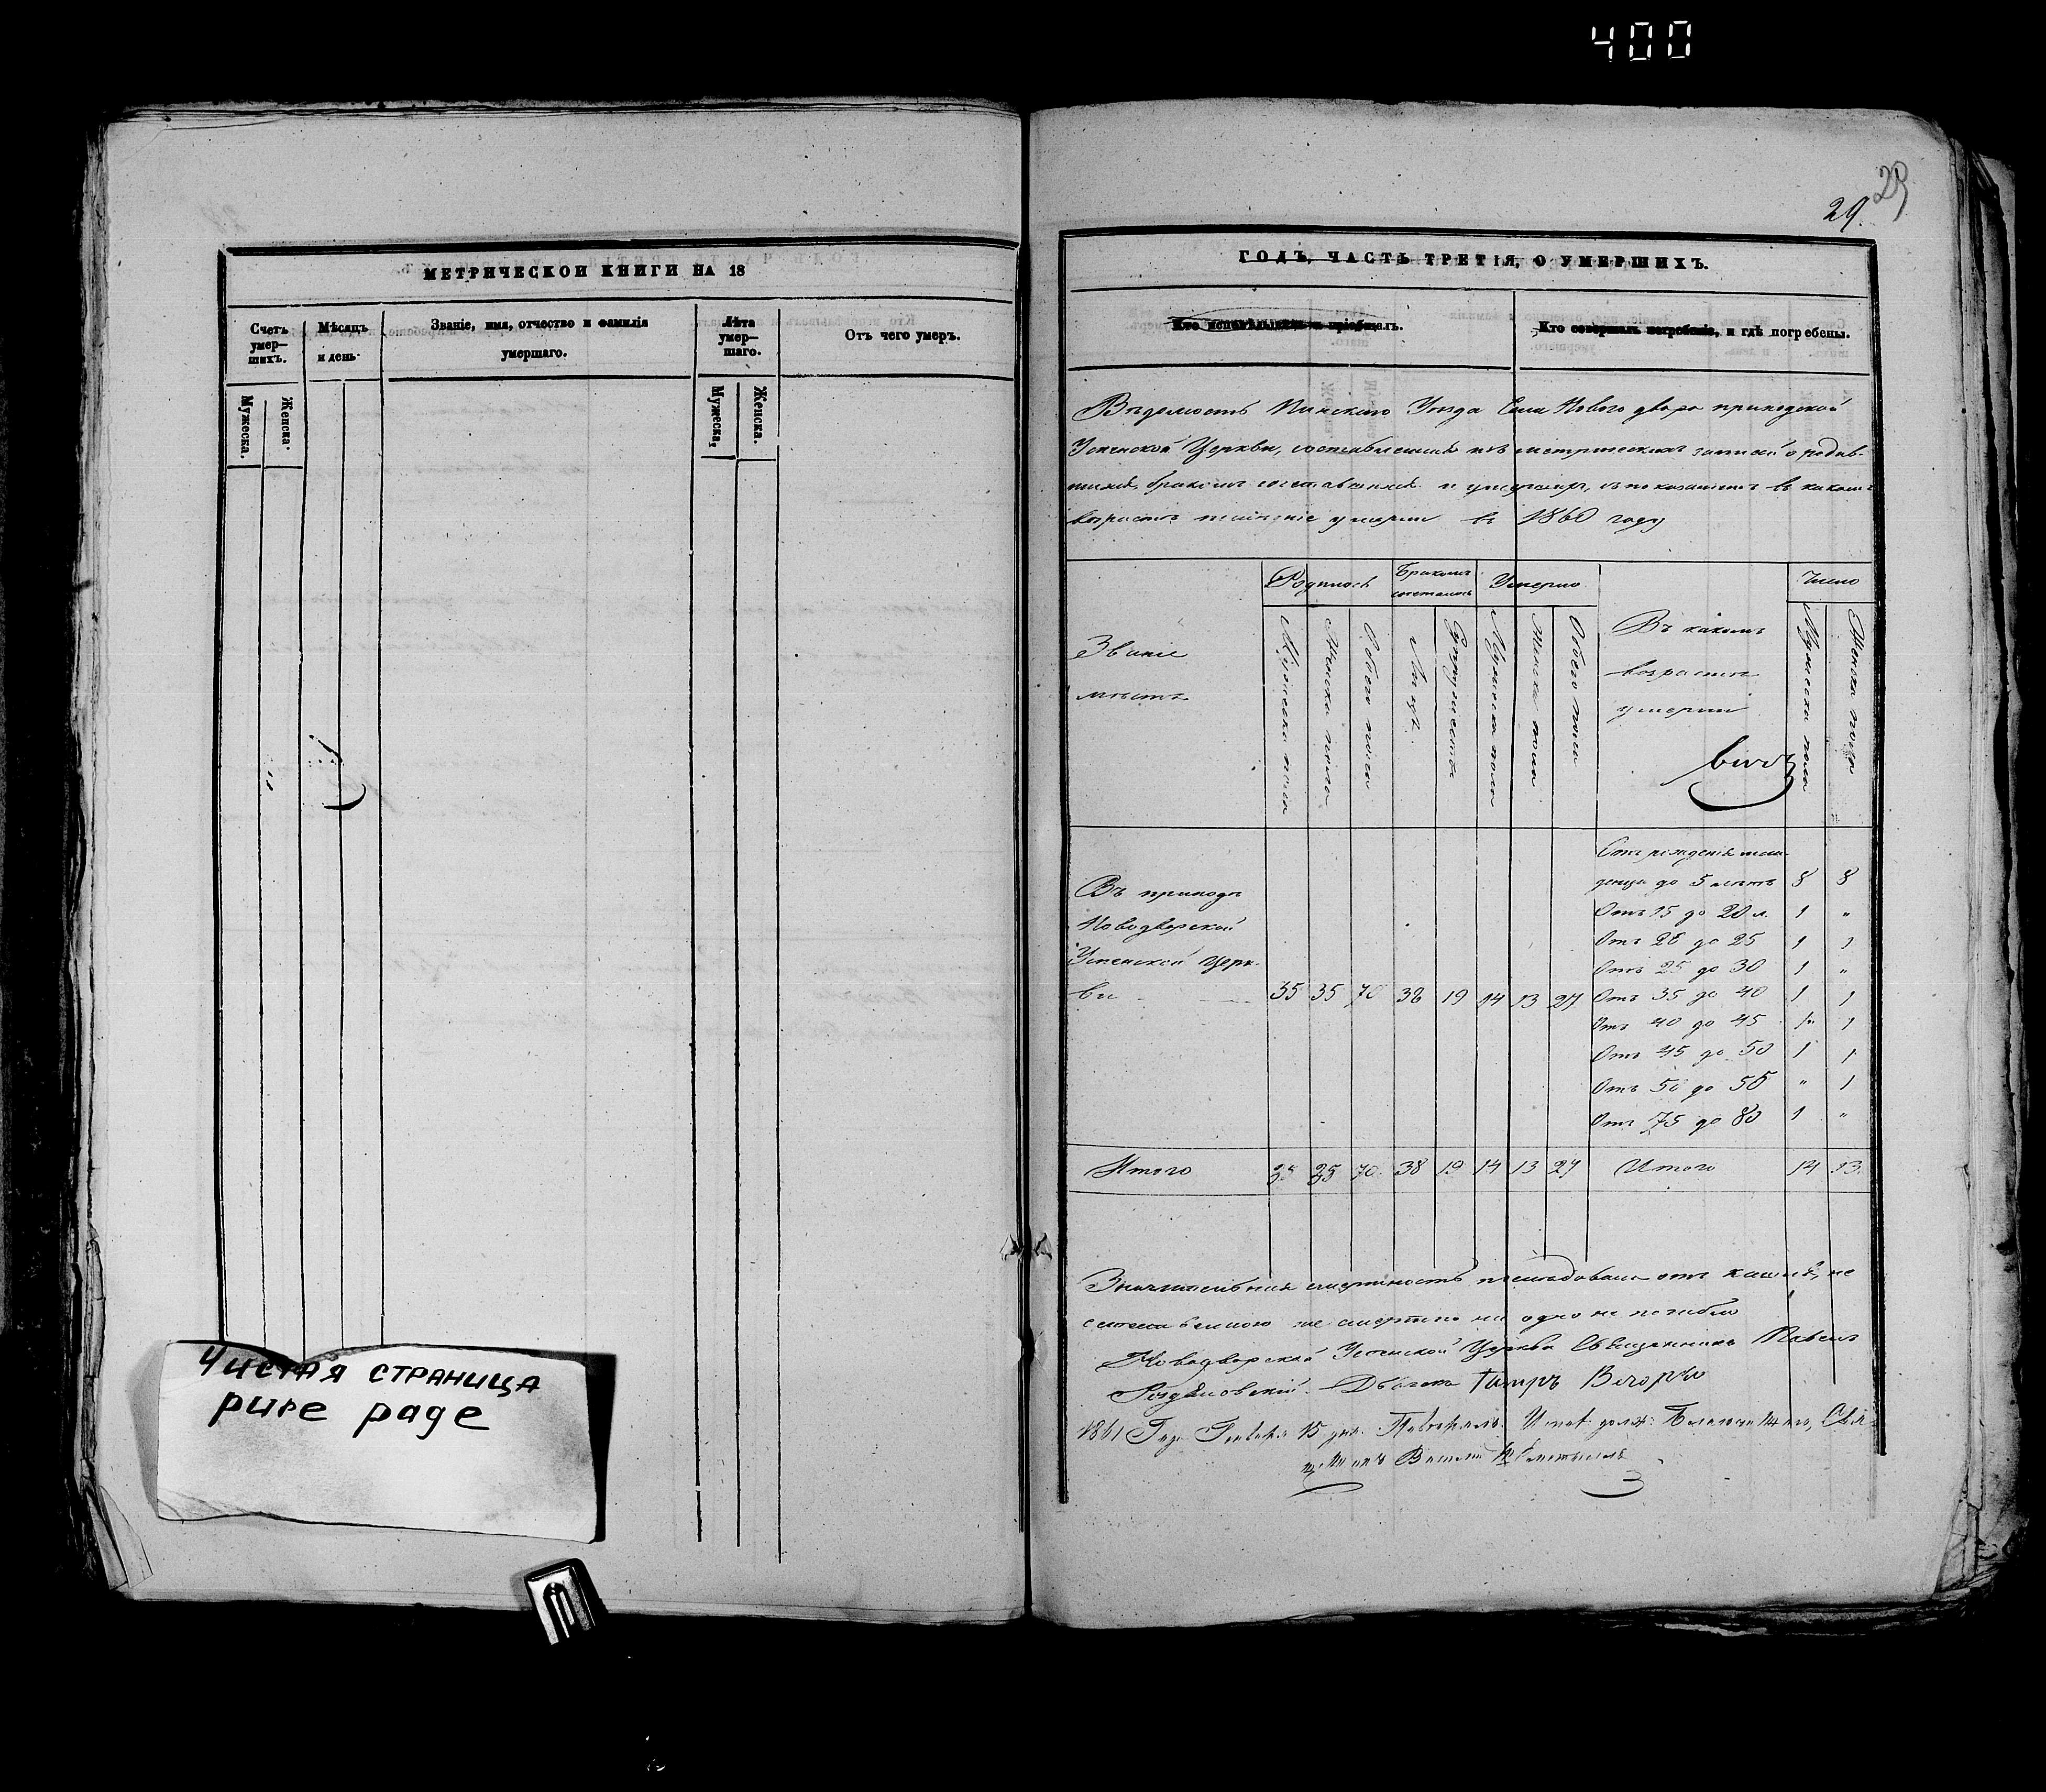 400
29
29.
МЕТРИЧЕСКОЙ КНИГИ НА 18
Счетъ умер—шихъ.
Мѣсяцъ и день.
Званіе, имя, отчество и фамилія
умершаго.
Лѣта умер—шаго.
Отъ чего умеръ.
Мужеска.
Женска.
Мужеска,
Женска.
Чистая страница
pure page
ГОДЪ, ЧАСТЬ ТРЕТІЯ, О УМЕРШИХЪ.
Кто исповѣдывалъ и пріобщалъ.
Кто совершалъ погребеніе, и гдѣ погребены.
Вѣдомость Пинскаго Уѣзда Села Новаго двора приходской
Успенской Церкви, составленная изъ метрическихъ записей о родив-
шихся, бракомъ сочетавшихся и умершихъ, съ показаніемъ въ какомъ
возрастѣ умерли въ 1860 году
Званіе
мѣстъ
Родилось
Бракомъ
сочеталось
Умерло
Въ какомъ
возрастѣ
умерли
Число
Мужеска пола
Женска пола
Обоего пола
Лицъ
Супружествъ
Мужеска пола
Женска пола
Обоего пола
Мужеска пола
Женска пола
Отъ рожденія мла-
денца до 5 лѣтъ 8 8
Въ приходѣ
Новодворской
Успенской Церк-
ви 35 35 70 38 19 14 13 27
Отъ 15 до 20 л. 1 "
Отъ 20 до 25 1 1
Отъ 25 до 30 1 "
Отъ 35 до 40 1 1
Отъ 40 до 45 1
Отъ 45 до 50 1 1
Отъ 50 до 55 " 1
Отъ 75 до 80 1 "
Итого 35 35 70 38 19 14 13 27 Итого 14 13.
Значительная смертность отъ кашля, не
естественною же смертію ни одно не погибло
Новодворской Успенской Церкви Священникъ Павелъ
Дьячекъ
1861 Года Генваря 15 дня.